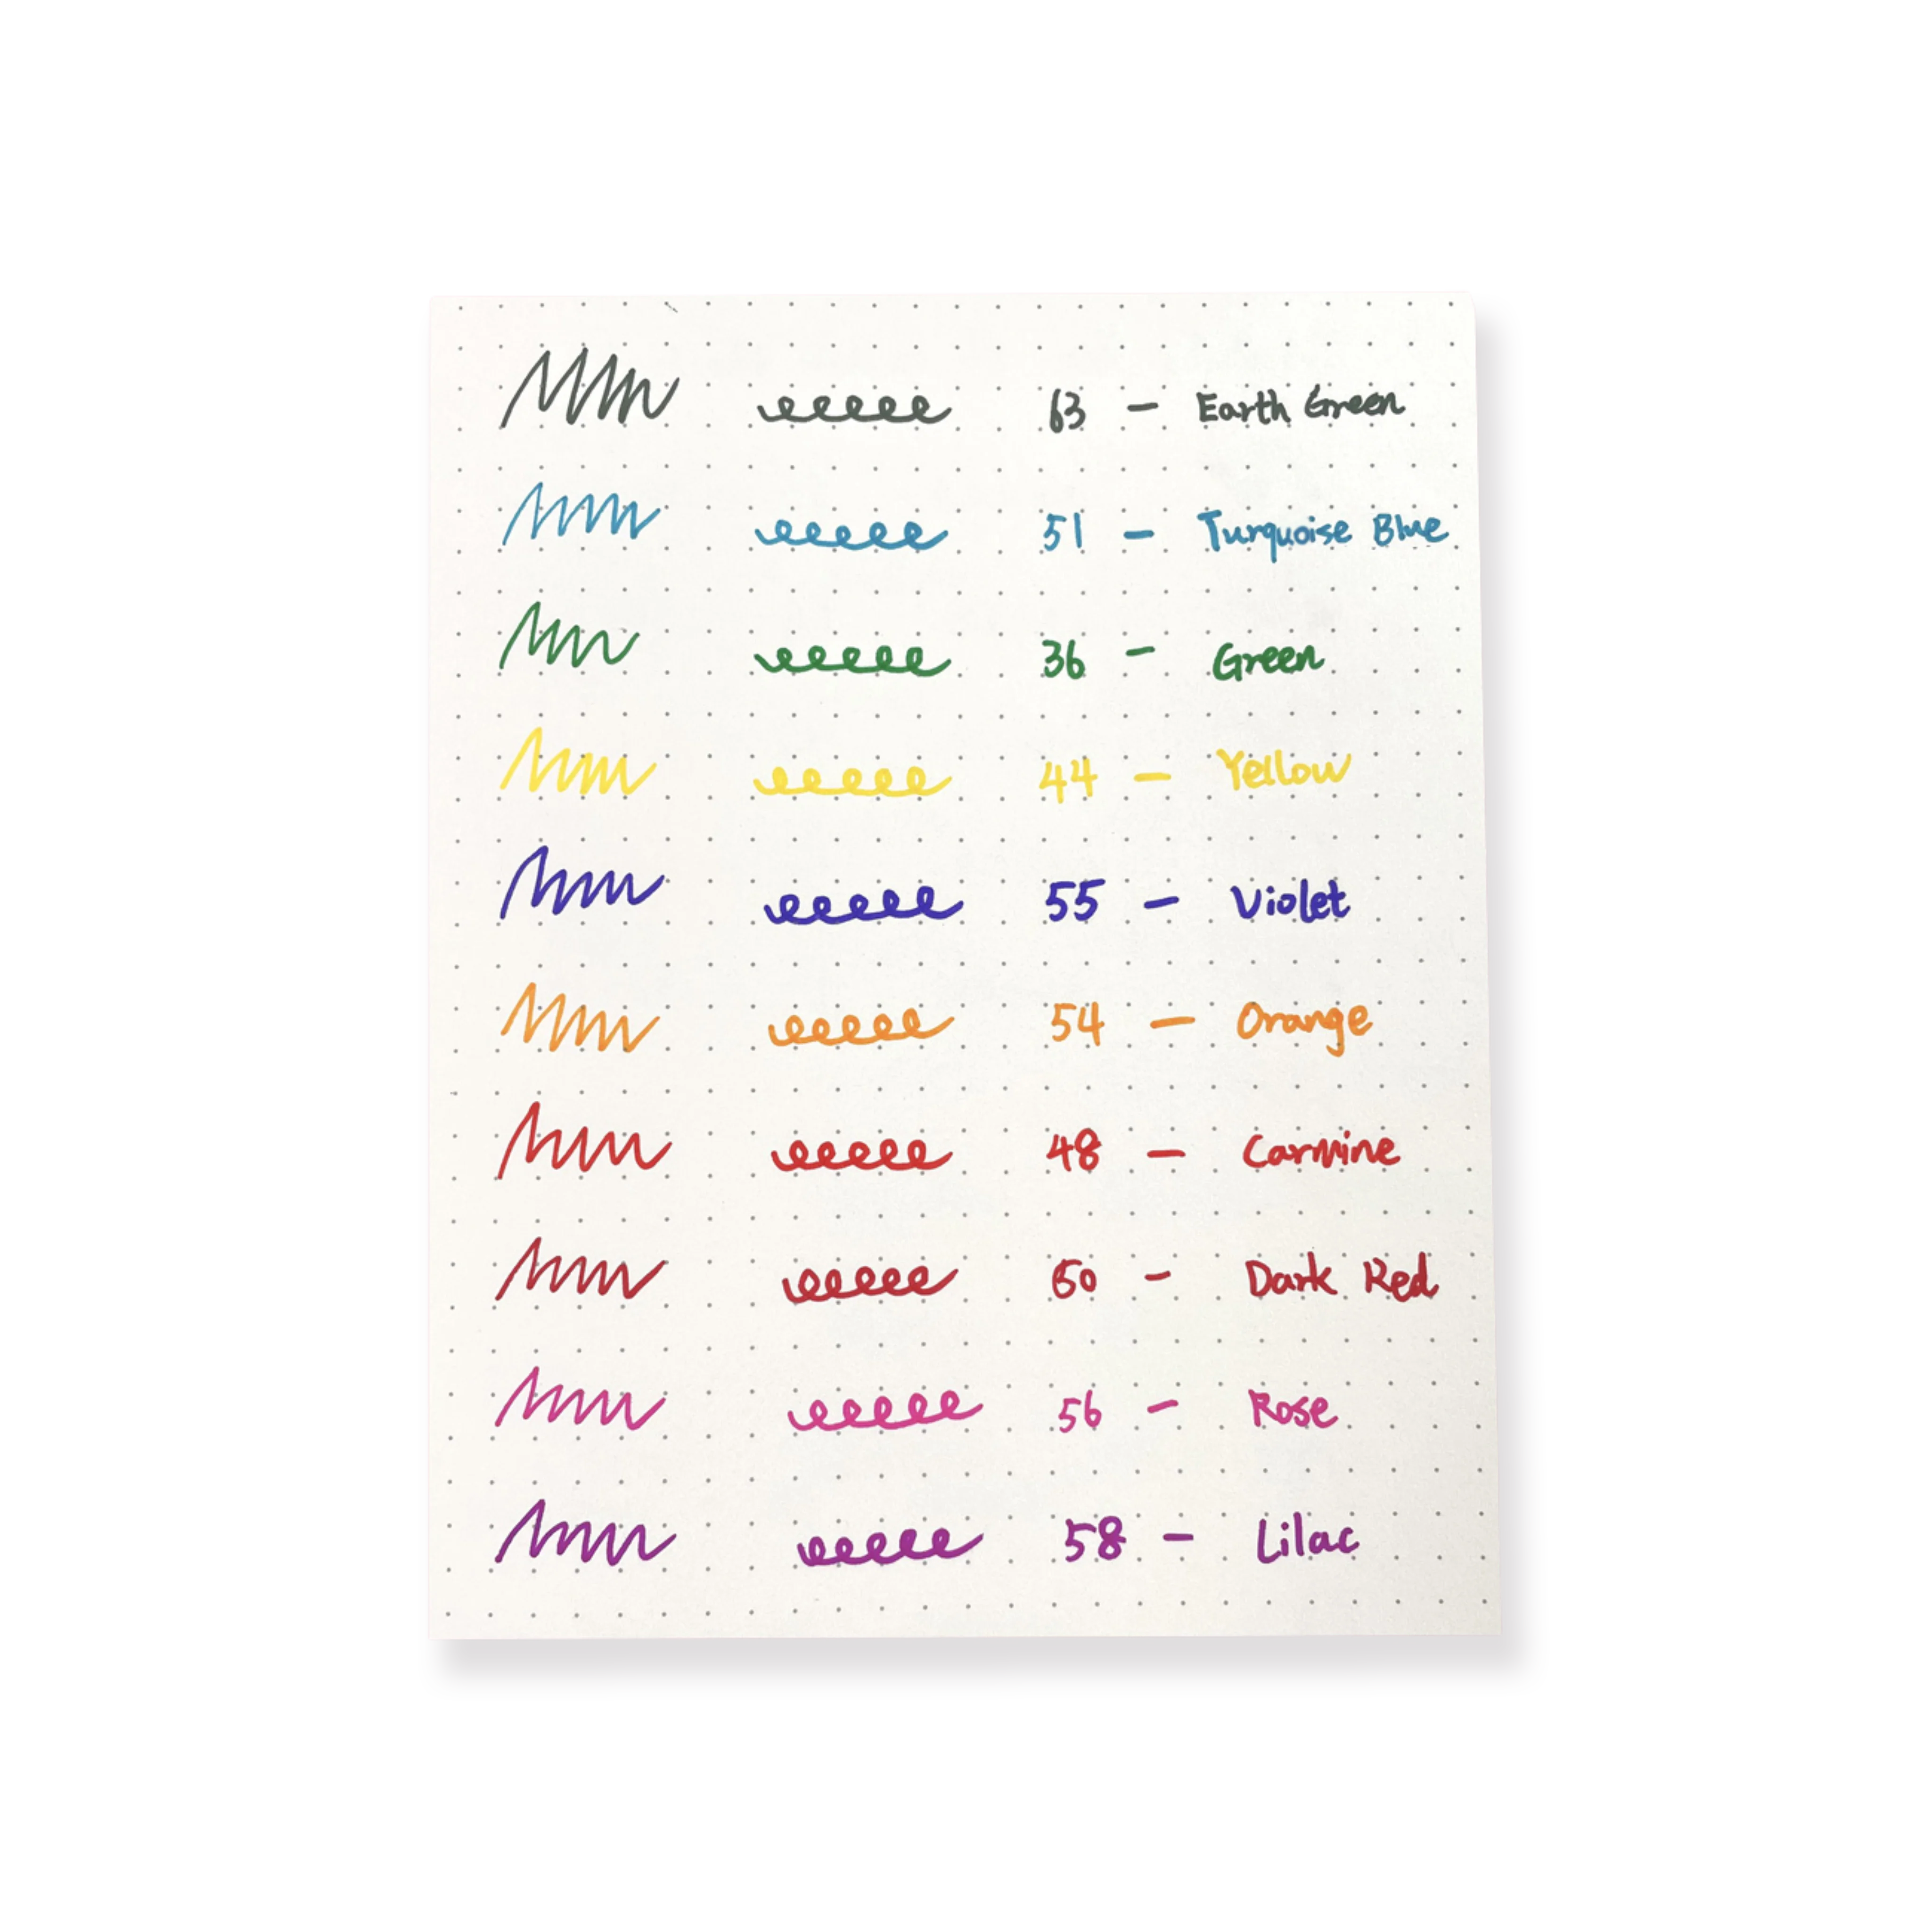 63 - Earth Green
51 - Turquoise Blue
36 - Green
44 - Yellow
55 - Violet
54 - Orange
48 - Carmine
50 - Dark Red
56 - Rose
58 - Lilac